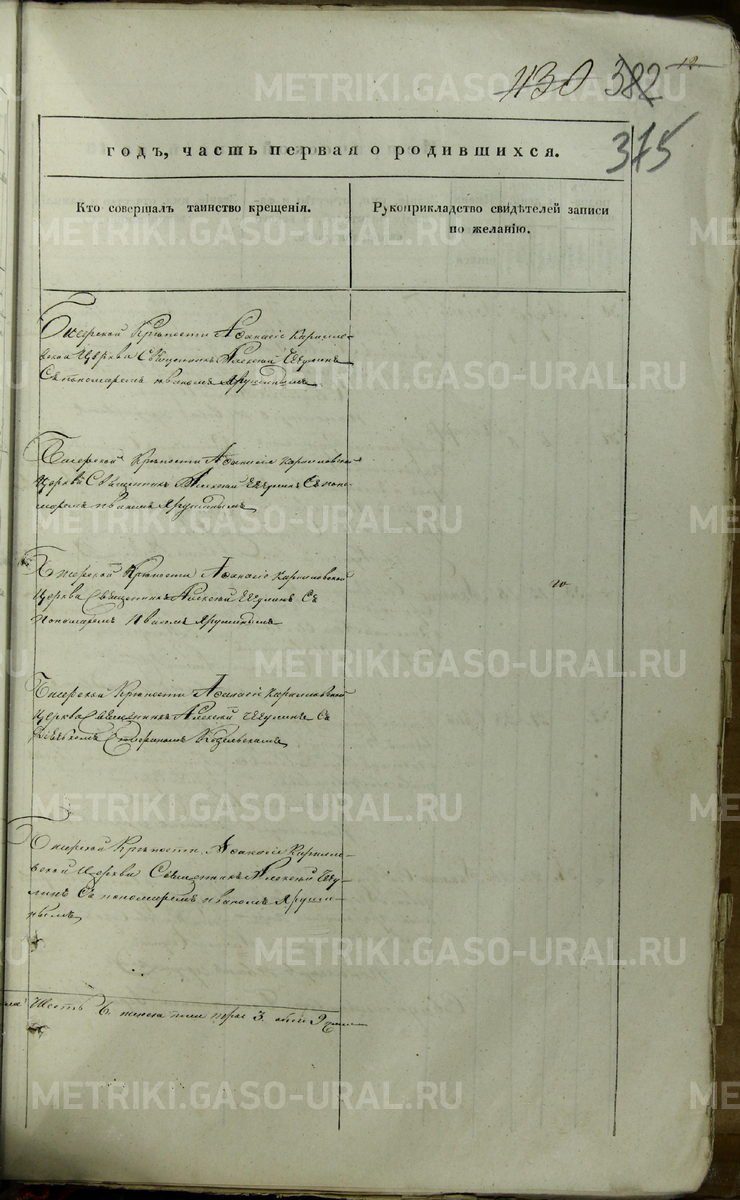 METRIKI.GASO-URAL.RU
430 382 12
375
годъ, часть первая о родившихся.
Кто совершалъ таинство крещенія.
Рукоприкладство свидѣтелей записи
по желанію.
Бисерской Крѣпости Афанасіе Кирилло-
вской Церкви Священникъ Алексѣй
Съ пономаремъ Иваномъ Ярушинымъ
Бисерской Крѣпости Афанасіе Кирилловской
Церкви Священникъ Алексѣй Съ поно-
маремъ Иваномъ Ярушинымъ
Бисерской Крѣпости Афанасіе Кирилловской
Церкви Священникъ Алексѣй Съ
пономаремъ Иваномъ Ярушинымъ
Бисерской Крѣпости Афанасіе Кирилловской
Церкви Священникъ Алексѣй Съ
Стефаномъ
Бисерской Крѣпости Афанасіе Кирилло-
вской Церкви Священникъ Алексѣй
Съ пономаремъ Иваномъ Яруши-
нымъ
Шесть 6. женска пола три 3.